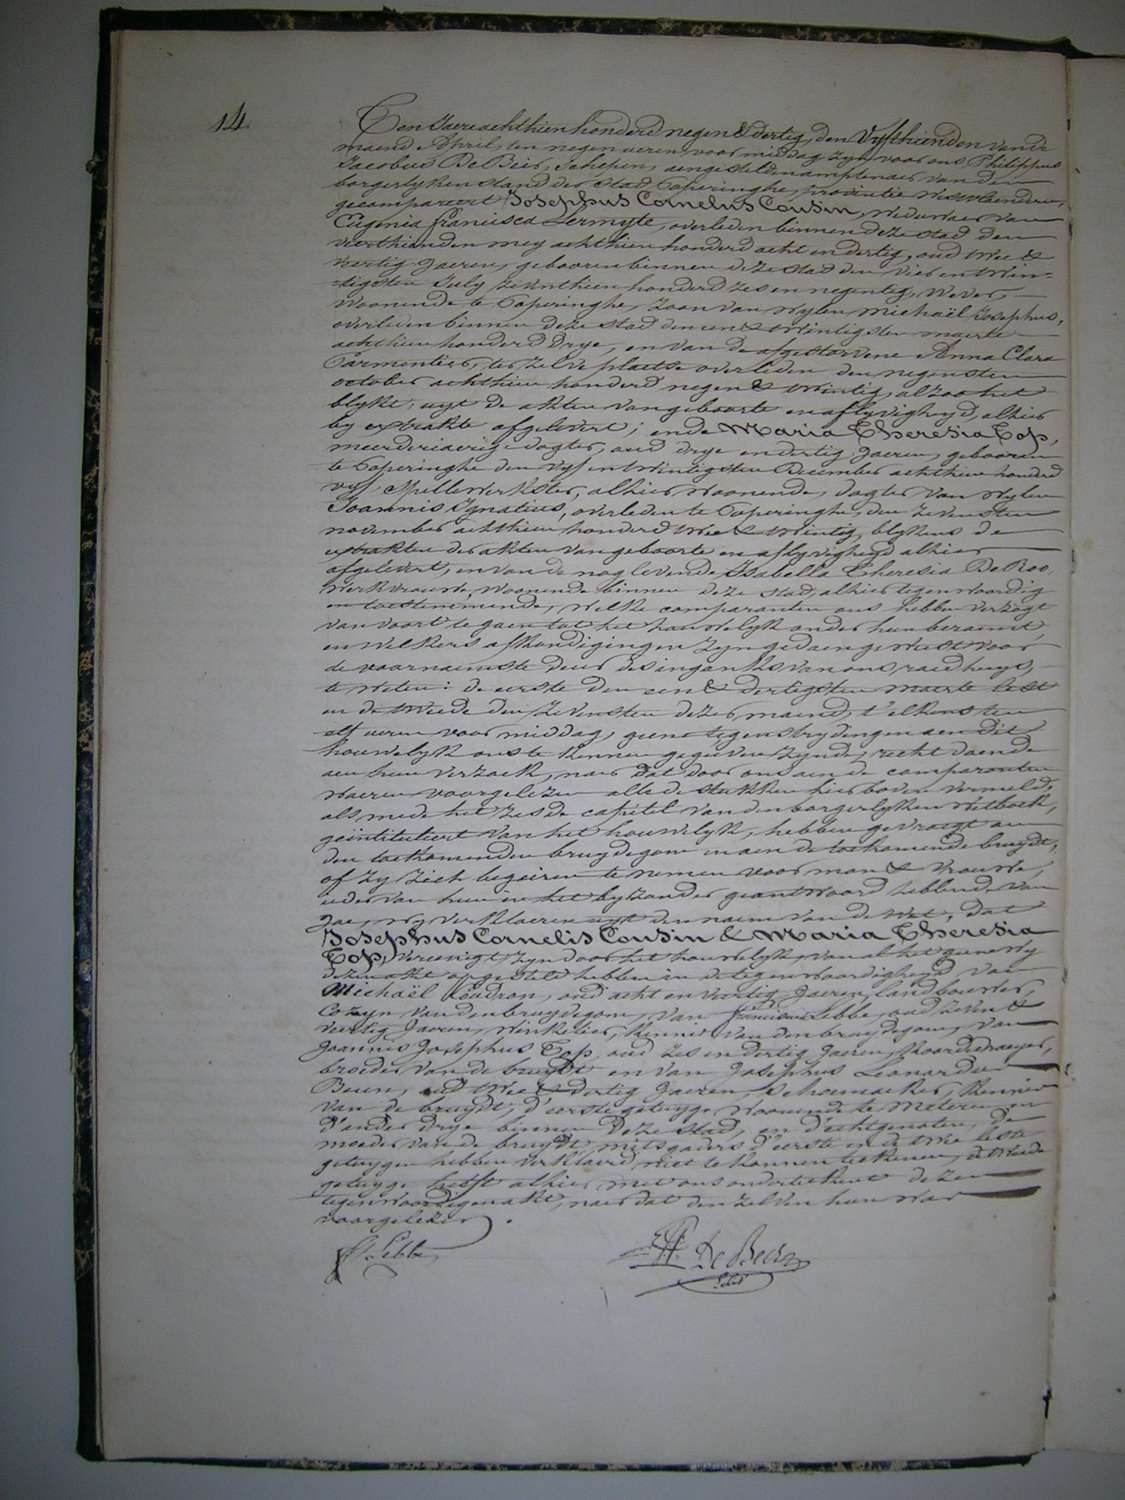 14
Ten Jaere achthien honderd negen & dertig, den Vyfthienden van de
maend April, ten negen ueren voor middag, zyn voor ons Philippus
Jacobus De Beir, Schepen, aengestelden amptenaer van den
borgerlyken stand der Stad Poperinghe, provintie Westvlaenderen,
gecompareert Josephus Cornelus Cousin, Weduwaer van
Eugenia francisca Lermyte, overleden binnen deze stad den
veerthienden mey achthien honderd acht en dertig, oud twee &
veertig Jaeren, gebooren binnen deze stad den vier en twin-
tigsten July zeventhien honderd zes en negentig, Wever,
Woonende te Poperinghe, Zoon van Wylen Michaël Josephus,
overleden binnen deze stad den een & twintigsten maerte
achthien honderd drye, en van de afgestorvene Anna Clara
Parmentier, ter zelve plaetse overleden den negensten
october achthien honderd negen & twintig, alzoo het
blykt, uyt de akten van geboorte en aflyvigheyd, alhier
by extrakte afgelevert; ende Maria Theresia Top,
meerderjaerige dogter, oud drye en dertig Jaeren, gebooren
te Poperinghe den vyf en twintigsten December achthien honderd
vyf, Spellewerkster, alhier Woonende, dogter van Wylen
Joannis Ignatius, overleden te Poperinghe, den zevensten
november achthien honderd twee & twintig, blykens de
extrakten der akten van geboorte en aflyvigheyd alhier
afgelevert, en van de nog levende Isabella Theresia De Roo,
Werkvrouwe, Woonende binnen deze stad, alhier tegenwoordig
en toestemmende, Welke comparanten ons hebben verzogt
van voort te gaen tot het houwelyk onder hun beraemt,
en Welkers afkondigingen zyn gedaen geweest voor
de voornaemste deur des ingangs van ons raedhuys,
te weten: de eerste den een & dertigsten Maerte lest
en de tweede den zevensten dezer maend, t'elkens ten
elf ueren voor middag, geene tegenstrydingen aen dit
houwelyk ons te kennen gegeven zynde, recht doende
aen hun verzoek, naer dat door ons aen de comparanten
Waeren voorgelezen alle de stukken hier boven vermeld,
als mede het zesde capitel van den borgerlyken Wetboek,
geïntituleert van het houwelyk, hebben gevraegt aen
den toekomenden bruydegom en aen de toekomende bruydt,
of zy zich begeiren te nemen voor man & vrouwe,
ieder van hun in het byzonder geantwoord hebbende van
Jae, Wy verklaeren uyt den naem van de Wet, dat
Josephus Cornelis Cousin & Maria Theresia
Top, Vereenigt zyn door het houwelyk, van al het geene wy
dezen akt opgestelt hebben in de tegenwoordigheyd van
Michaël Loudron, oud acht en veertig Jaeren, landbouwer,
Cozyn van den bruydegom, van franciscus Lebbe, oud zeven &
veertig Jaeren, Winkelier, Kennis van den bruydegom, van
Joannis Josephus Top, oud zes en dertig Jaeren, Koordedraeyer,
broeder van de bruydt en van Josephus Leonardus
Beun, oud twee & dertig Jaeren, Schoenmaeker, Kennis
van de bruydt, d'eerste getuyge Woonende te Meteren en
d'ander drye binnen deze stad, en d'echtgenoten, de
moeder van de bruydt, mitsgaders d'eerste en de twee leste
getuygen hebben verklaerd niet te konnen teekenen, de tweede
getuyge heeft alhier met ons onderteekent dezen
tegenwoordigen akt, naer dat den zelven hun was
voorgelezen.
Fs. Lebbe
Ph. De Beir
Schep.